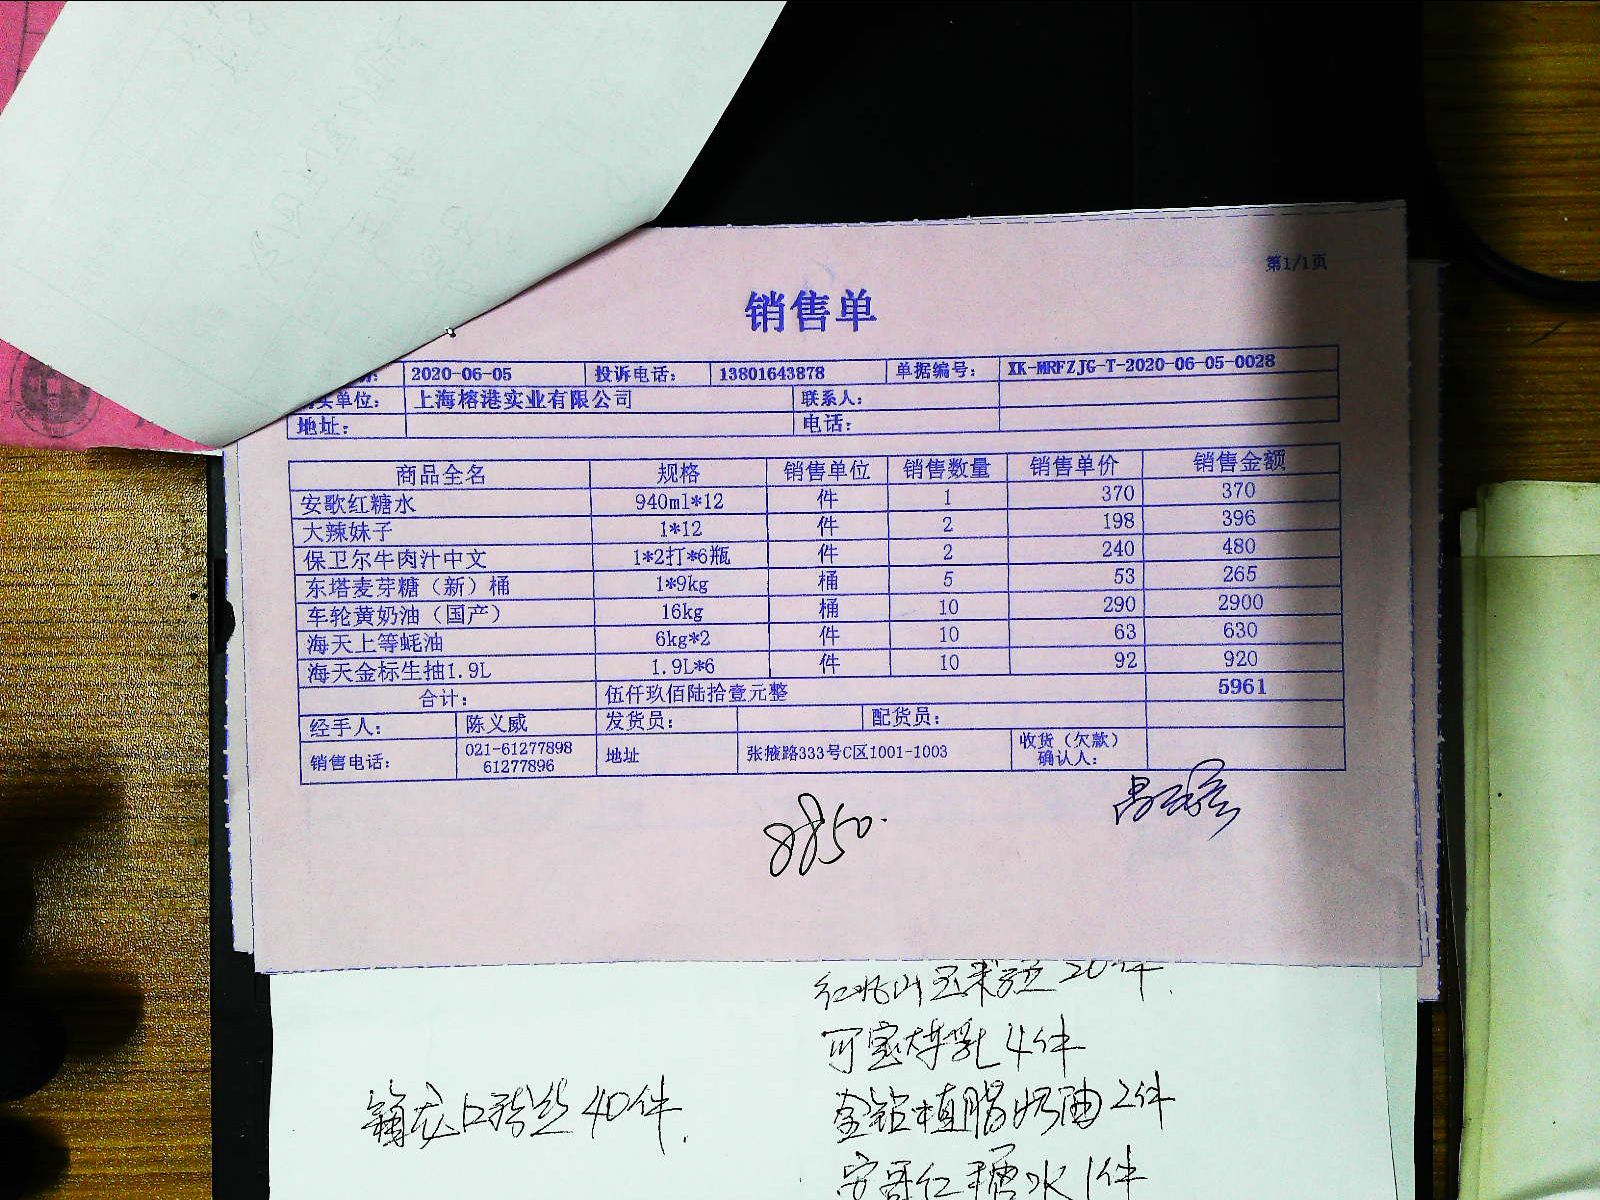 第1/1页
销售单
2020-06-05 投诉电话: 13801643878 单据编号: XK-MRFZJG-T-2020-06-05-0028
买单位: 上海榕港实业有限公司 联系人:
地址: 电话:
商品全名 规格 销售单位 销售数量 销售单价 销售金额
安歌红糖水 940ml*12 件 1 370 370
大辣妹子 1*12 件 2 198 396
保卫尔牛肉汁中文 1*2打*6瓶 件 2 240 480
东塔麦芽糖（新）桶 1*9kg 桶 5 53 265
车轮黄奶油（国产） 16kg 桶 10 290 2900
海天上等蚝油 6kg*2 件 10 63 630
海天金标生抽1.9L 1.9L*6 件 10 92 920
合计: 伍仟玖佰陆拾壹元整 5961
经手人: 陈义威 发货员: 配货员:
销售电话: 021-61277898 61277896 地址 张掖路333号C区1001-1003 收货（欠款）确认人:
8850.
玉米 20件
4件
龙口粉丝40件
金钻植脂奶油2件
安哥红糖水1件